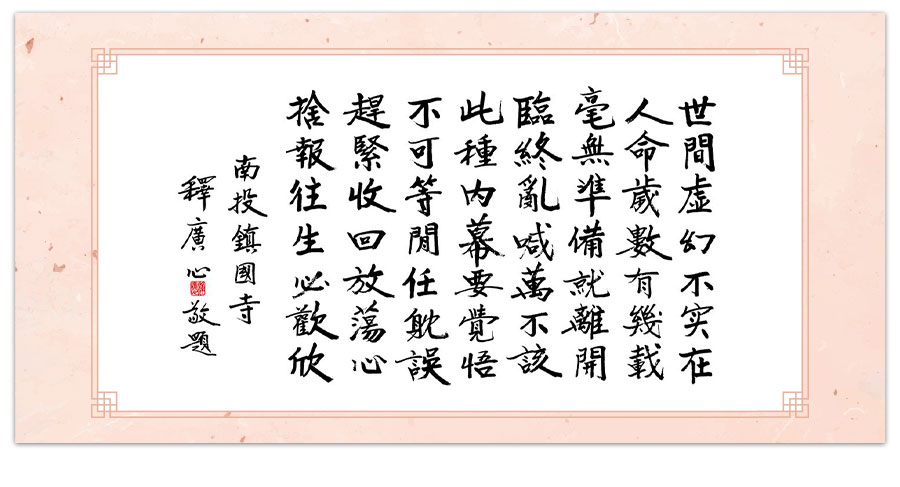 世間虛幻不实在
人命歲數有幾載
毫無準備就離開
臨終亂喊萬不該
此種內幕要覺悟
不可等閒任耽誤
趕緊收回放蕩心
捨報往生必歡欣
南投鎮國寺
釋廣心敬題